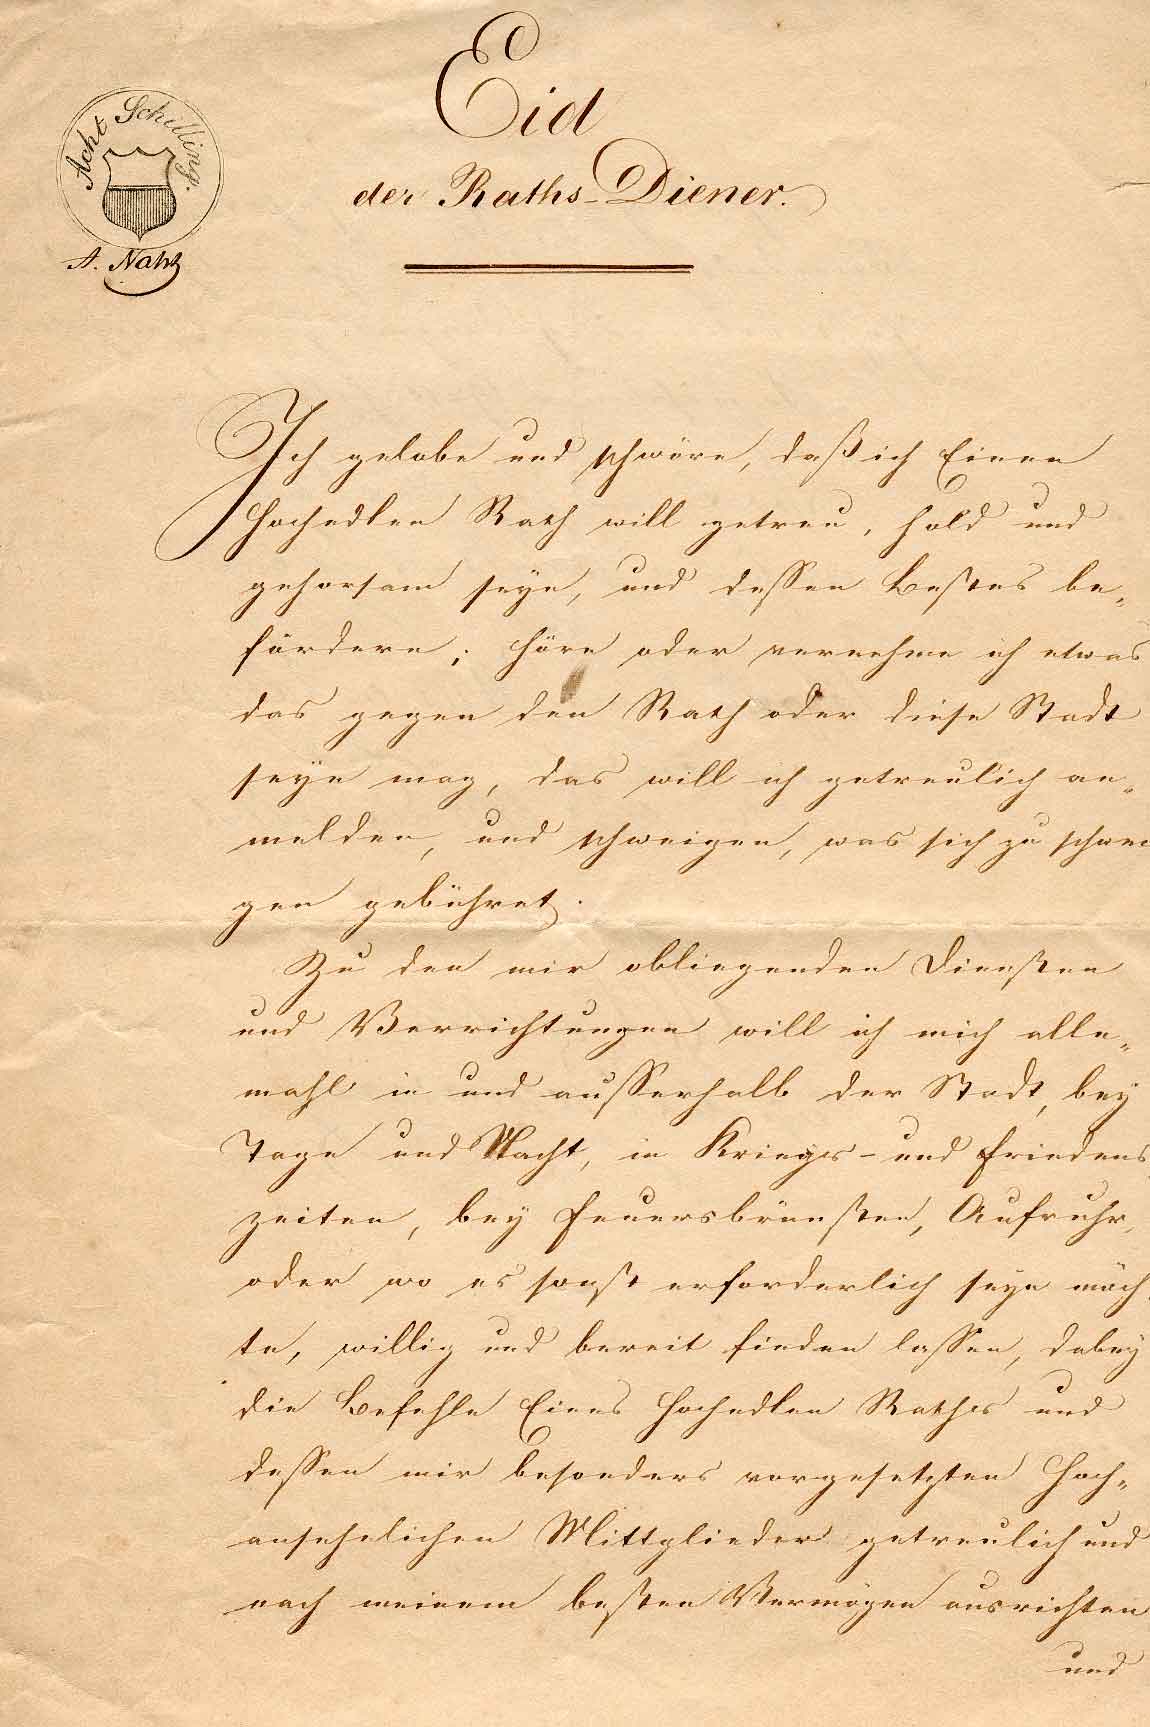 Eid
der Raths-Diener.
Acht Schilling.
A. Nahz
Ich gelobe und schwöre, daß ich Einen
Hochedlen Rath will getreu, hold und
gehorsam seyn, und dessen Bestes be„
fördern; höre oder vernehme ich etwas
das gegen den Rath oder diese Stadt
seyn mag, das will ich getreulich an„
melden, und schweigen, was sich zu schwei
gen gebühret.
Zu den mir obliegenden Diensten
und Verrichtungen will ich mich alle„
mahl in und ausserhalb der Stadt, bey
Tage und Nacht, in Kriegs- und Friedens
zeiten, bey Feuersbrünsten, Aufruhr,
oder wo es sonst erforderlich seyn möch
te, willig und bereit finden lassen, dabey
die Befehle Eines Hochedlen Raths und
dessen mir besonders vorgesetzten Hoch„
ansehnlichen Mittglieder getreulich und
nach meinem besten Vermögen ausrichten
und